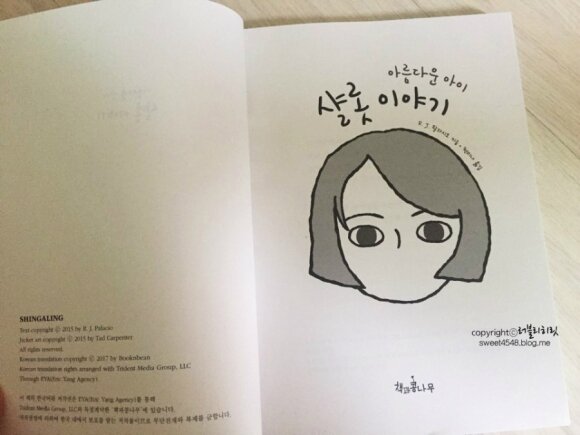 SHINGALING
Text copyright ⓒ 2015 by R. J. Palacio
Jacket art copyright ⓒ 2015 by Tad Carpenter
All rights reserved.
Korean translation copyright ⓒ 2017 by Booknbean
Korean translation rights arranged with Trident Media Group, LLC
Through EYA(Eric Yang Agency)
이 책의 한국어판 저작권은 EYA(Eric Yang Agency)를 통해
Trident Media Group, LLC와 독점계약한 '책과콩나무'에 있습니다.
저작권법에 의하여 한국 내에서 보호를 받는 저작물이므로 무단전재와 복제를 금합니다.
아름다운 아이
샬롯 이야기
R. J. 팔라시오 지음 · 천미나 옮김
책과콩나무
copyrightⓒ러블리히릿
sweet4548.blog.me